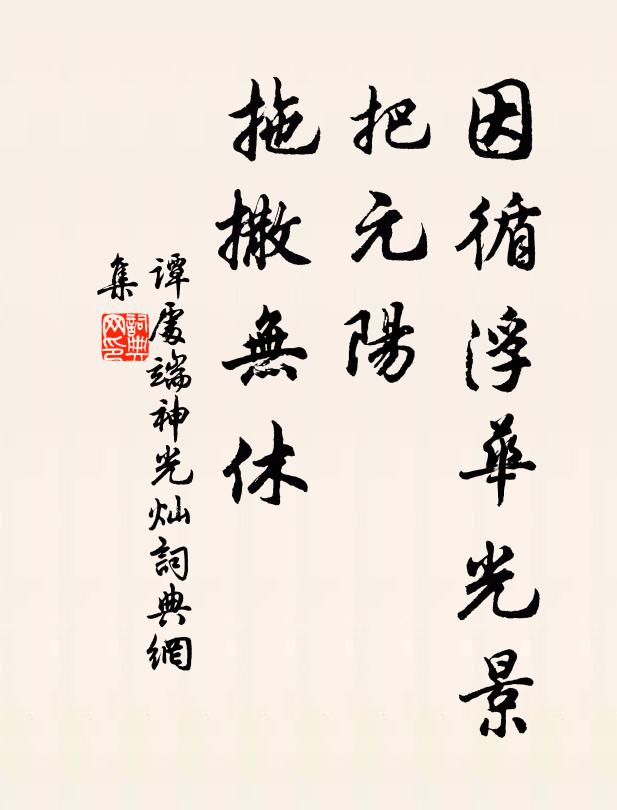 因循浮華光景
把元陽
拖撒無休
譚處端神光灿詞典網
集
詞典
网印